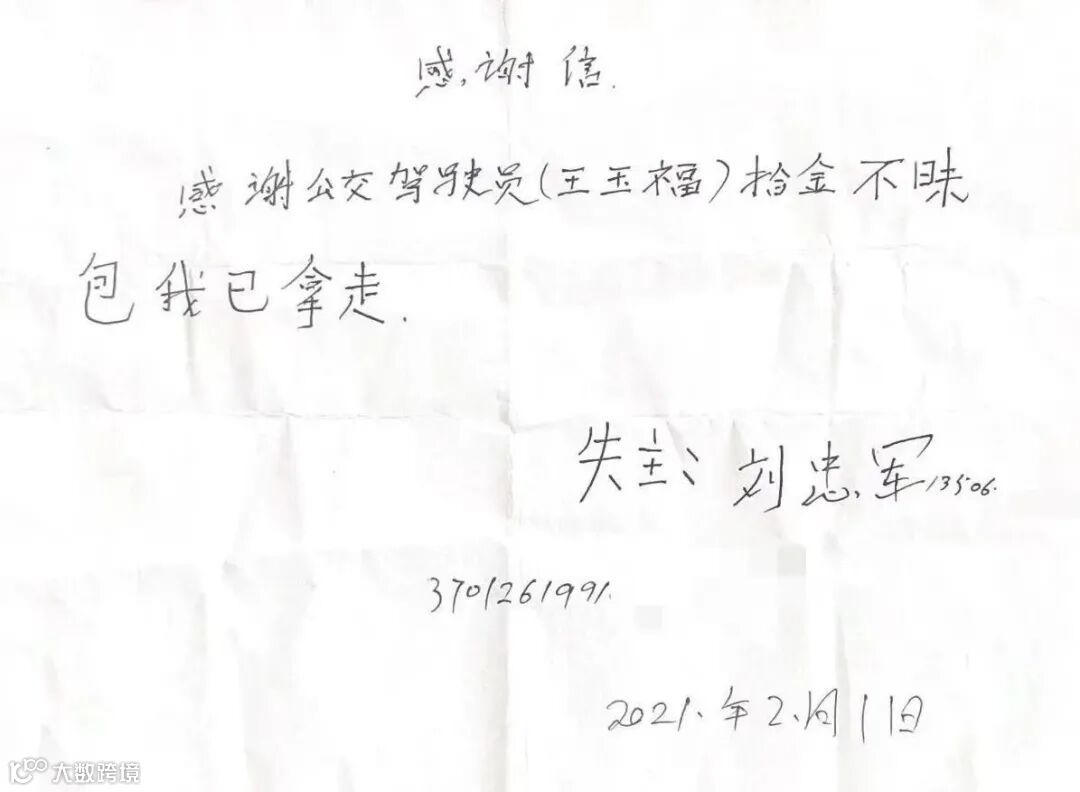 感谢信.
感谢公交驾驶员(王玉福)拾金不昧
包我已拿走.
失主: 刘忠军13506.
3701261991.
2021.年2.月11日
大数跨境